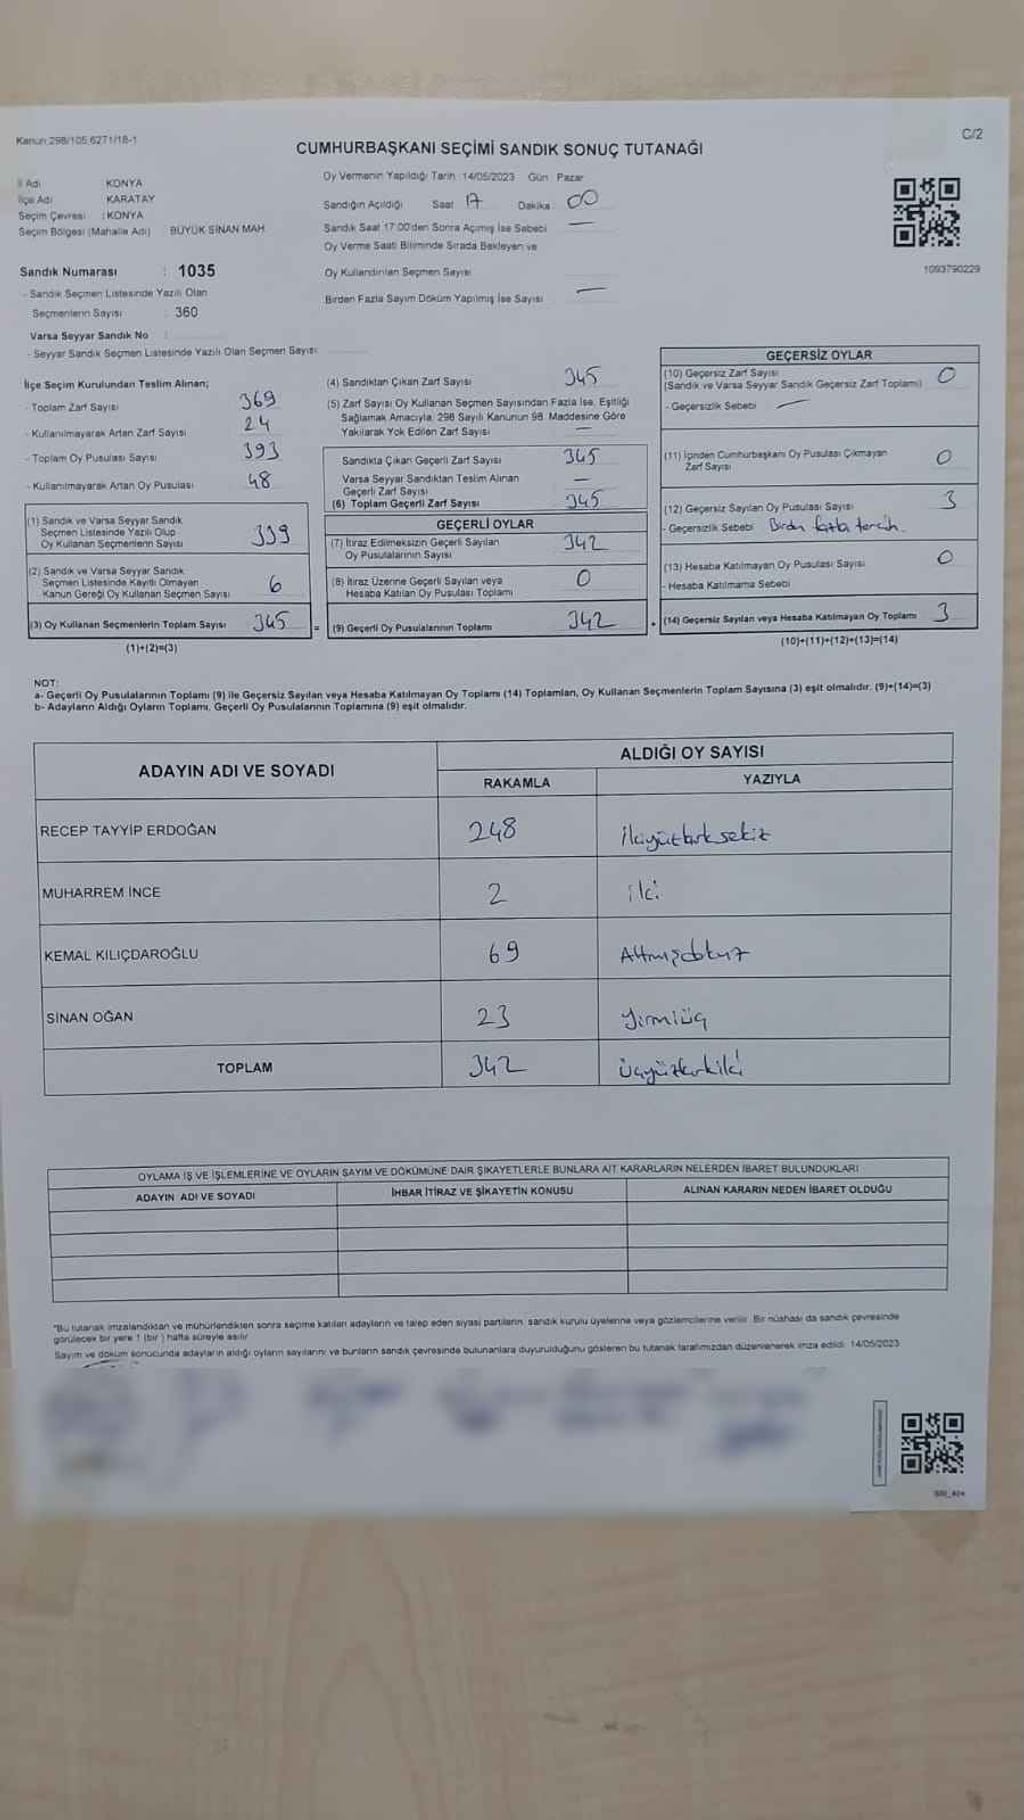 Kanun:298/105,6271/18-1
C/2
CUMHURBAŞKANI SEÇİMİ SANDIK SONUÇ TUTANAĞI
İl Adı : KONYA
İlçe Adı : KARATAY
Seçim Çevresi : KONYA
Seçim Bölgesi (Mahalle Adı) BÜYÜK SİNAN MAH
Sandık Numarası : 1035
- Sandık Seçmen Listesinde Yazılı Olan
Seçmenlerin Sayısı : 360
Varsa Seyyar Sandık No
- Seyyar Sandık Seçmen Listesinde Yazılı Olan Seçmen Sayısı:
Oy Vermenin Yapıldığı Tarih :14/05/2023 Gün : Pazar
Sandığın Açıldığı Saat 17 Dakika : 00
Sandık Saat 17:00'den Sonra Açılmış İse Sebebi —
Oy Verme Saati Bitiminde Sırada Bekleyen ve
Oy Kullandırılan Seçmen Sayısı
Birden Fazla Sayım Döküm Yapılmış İse Sayısı —
1093790229
İlçe Seçim Kurulundan Teslim Alınan;
- Toplam Zarf Sayısı 369
- Kullanılmayarak Artan Zarf Sayısı 24
- Toplam Oy Pusulası Sayısı 393
- Kullanılmayarak Artan Oy Pusulası 48
(1) Sandık ve Varsa Seyyar Sandık
Seçmen Listesinde Yazılı Olup
Oy Kullanan Seçmenlerin Sayısı 339
(2) Sandık ve Varsa Seyyar Sandık
Seçmen Listesinde Kayıtlı Olmayan
Kanun Gereği Oy Kullanan Seçmen Sayısı 6
(3) Oy Kullanan Seçmenlerin Toplam Sayısı 345
(1)+(2)=(3)
(4) Sandıktan Çıkan Zarf Sayısı 345
(5) Zarf Sayısı Oy Kullanan Seçmen Sayısından Fazla İse, Eşitliği
Sağlamak Amacıyla, 298 Sayılı Kanunun 98. Maddesine Göre
Yakılarak Yok Edilen Zarf Sayısı —
Sandıkta Çıkan Geçerli Zarf Sayısı 345
Varsa Seyyar Sandıktan Teslim Alınan
Geçerli Zarf Sayısı —
(6) Toplam Geçerli Zarf Sayısı 345
GEÇERLİ OYLAR
(7) İtiraz Edilmeksizin Geçerli Sayılan
Oy Pusulalarının Sayısı 342
(8) İtiraz Üzerine Geçerli Sayılan veya
Hesaba Katılan Oy Pusulası Toplamı 0
= (9) Geçerli Oy Pusulalarının Toplamı 342
GEÇERSİZ OYLAR
(10) Geçersiz Zarf Sayısı 0
(Sandık ve Varsa Seyyar Sandık Geçersiz Zarf Toplamı)
- Geçersizlik Sebebi —
(11) İçinden Cumhurbaşkanı Oy Pusulası Çıkmayan
Zarf Sayısı 0
(12) Geçersiz Sayılan Oy Pusulası Sayısı 3
- Geçersizlik Sebebi Birden fazla tercih.
(13) Hesaba Katılmayan Oy Pusulası Sayısı 0
- Hesaba Katılmama Sebebi
+ (14) Geçersiz Sayılan veya Hesaba Katılmayan Oy Toplamı 3
(10)+(11)+(12)+(13)=(14)
NOT:
a- Geçerli Oy Pusulalarının Toplamı (9) ile Geçersiz Sayılan veya Hesaba Katılmayan Oy Toplamı (14) Toplamları, Oy Kullanan Seçmenlerin Toplam Sayısına (3) eşit olmalıdır. (9)+(14)=(3)
b- Adayların Aldığı Oyların Toplamı, Geçerli Oy Pusulalarının Toplamına (9) eşit olmalıdır.
ADAYIN ADI VE SOYADI
ALDIĞI OY SAYISI
RAKAMLA YAZIYLA
RECEP TAYYİP ERDOĞAN 248 ikiyüzkırksekiz
MUHARREM İNCE 2 iki
KEMAL KILIÇDAROĞLU 69 Altmışdokuz
SİNAN OĞAN 23 Yirmiüç
TOPLAM 342 üçyüzkırkiki
OYLAMA İŞ VE İŞLEMLERİNE VE OYLARIN SAYIM VE DÖKÜMÜNE DAİR ŞİKAYETLERLE BUNLARA AİT KARARLARIN NELERDEN İBARET BULUNDUKLARI
ADAYIN ADI VE SOYADI İHBAR İTİRAZ VE ŞİKAYETİN KONUSU ALINAN KARARIN NEDEN İBARET OLDUĞU
"Bu tutanak imzalandıktan ve mühürlendikten sonra seçime katılan adayların ve talep eden siyasi partilerin, sandık kurulu üyelerine veya gözlemcilerine verilir. Bir nüshası da sandık çevresinde
görülecek bir yere 1 (bir) hafta süreyle asılır.
Sayım ve döküm sonucunda adayların aldığı oyların sayılarını ve bunların sandık çevresinde bulunanlara duyurulduğunu gösteren bu tutanak tarafımızdan düzenlenerek imza edildi. 14/05/2023